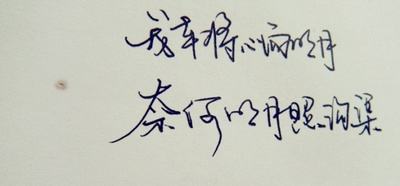 我本将心向明月
奈何明月照沟渠